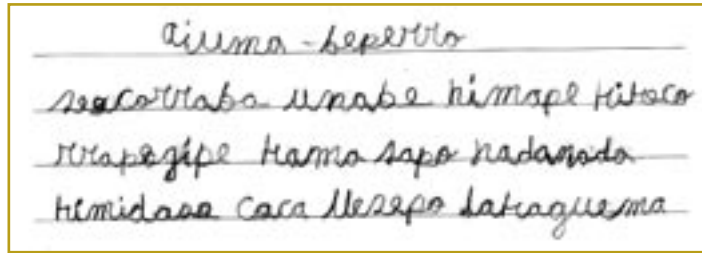 aiuma - beperro
seacorraba unabe himape titoco
rrapegipe trama sapo nadanado
timidasa caca llesepo datraguema